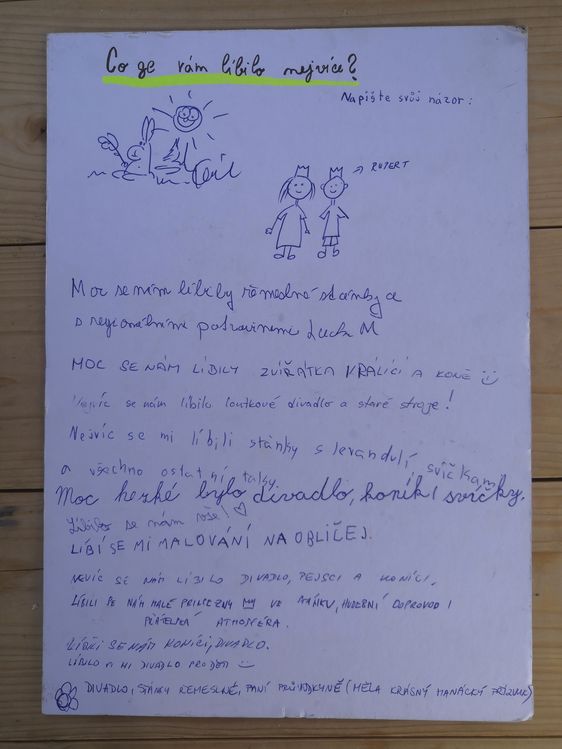 Co se vám líbilo nejvíce?
Napište svůj názor:
RUPERT
Moc se nám líbily řemeslné stánky a
s regionálními potravinami Lucka M
MOC SE NÁM LÍBILY ZVÍŘÁTKA KRÁLÍCI A KONĚ
Nejvíc se nám líbilo loutkové divadlo a staré stroje!
Nejvíc se mi líbili stánky s levandulí, svíčkami
a všechno ostatní taky.
Moc hezké bylo divadlo, koník, svíčky.
Líbilo se nám vše!
LÍBÍ SE MI MALOVÁNÍ NA OBLIČEJ.
NEVÍC SE NÁM LÍBILO DIVADLO, PEJSCI A KONÍCI.
LÍBILI SE NÁM MALÉ PRINCEZNY VE STÁNKU, HUDEBNÍ DOPROVOD I
PŘÁTELSKÁ ATMOSFÉRA.
LÍBILI SE NÁM KONÍCI, DIVADLO.
LÍBILO MI DIVADLO PRO DĚTI
DIVADLO, STÁNKY ŘEMESLNÉ, PANÍ PRŮVODKYNĚ (MĚLA KRÁSNÝ HANÁCKÝ PŘÍZVUK)